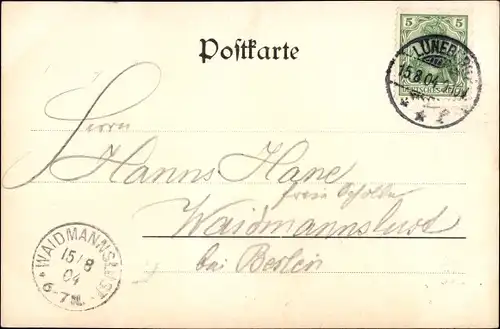 Postkarte
5
LÜNEBURG
15.8.04
* * f
Herrn
Hanns Hane
freie Scholle
Waidmannslust
bei Berlin
WAIDMANNSLUST
15/8
04
6-7N.